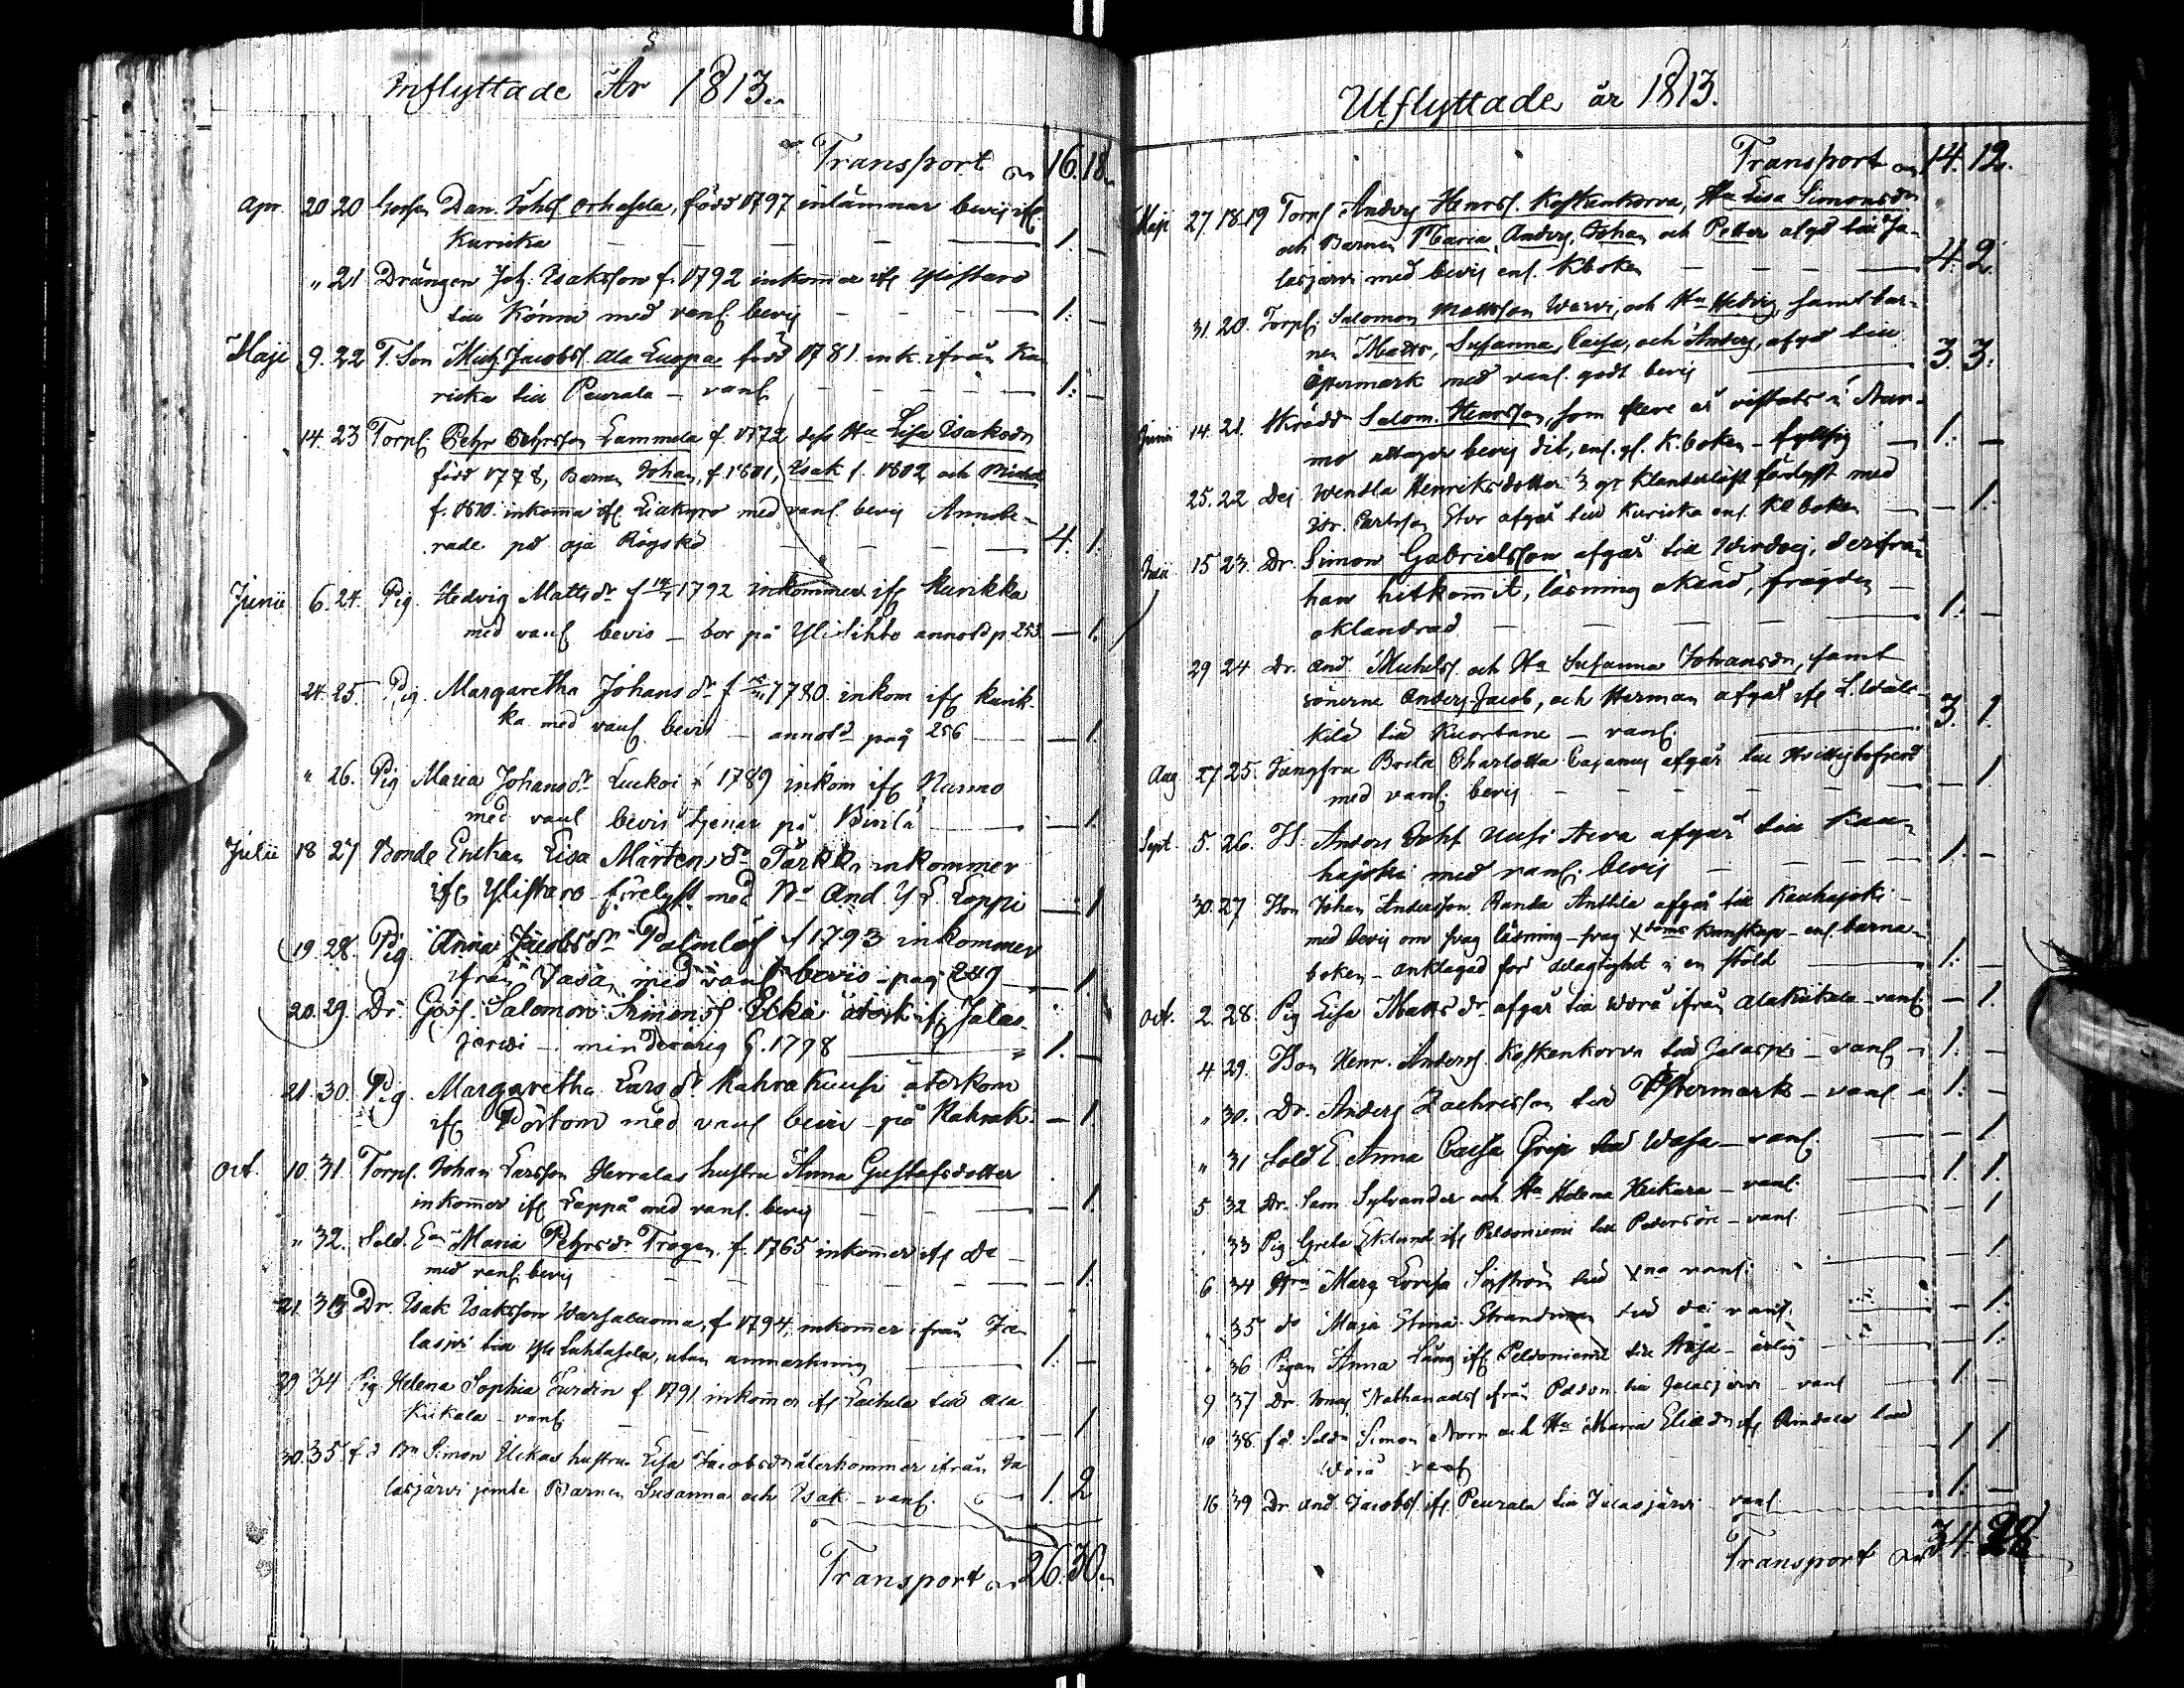 Inflyttade År 1813.
Transport 16. 18.
Apr. 20 20 Dan. Johs Orhasela, född 1797 inlämnar bevis ifr
Kuricka — 1. —
" 21 Drängen Joh. Isaksson f. 1792 inkommer ifr Ylistaro
till Könni med vanl. bevis — 1: —
Maji 9. 22 T. Son Jacobs. Ala Luopa född 1781. ink. ifrån Ku
ricka till Peurala — vanl. 1: —
14. 23 Torp. Petr Pehrsson Lammela f. 1772 dess Hu Lisa Isaksdr
född 1778, Barnen Johan, f 1801, Isak f. 1802 och Michel
f. 1810. inkomma ifr Liukyro med vanl. bevis Annote-
rade på — 4. 1.
Junii 6. 24. Pig. Hedvig Mattsdr f 1792 inkommer ifr Kurikka
med vanl bevis — bor på annot p 253 — 1.
24. 25. Pig. Margaretha Johansdr f 1780 inkom ifr Kurik-
ka med vanl. bevis — annot pag 256 — 1.
" 26. Pig Maria Johansdr Luckoi f 1789 inkom ifr Nurmo
med vanl bevis tjenar på — 1.
Julii 18 27 Bonde Enckan Lisa Mårtensdr Turkki inkommer
ifr Ylistaro förelyst med And Loppi — 1
19. 28. Pig Anna Jacobsdr Palmlöf f 1793 inkommer
ifrån Vasa, med vanl bevis - pag 249 — 1.
20. 29. Dr. Salomon Simons återk ifr Jalas-
jerwi — minderårig f. 1798 — 1. —
21. 30. Pig. Margaretha Larsdr Rahnakuusi återkom
ifr Pörtom med vanl bevis — på Rahnak. — 1.
Oct. 10. 31. Torp. Johan Larsson Herralas hustru Anna Gustafsdotter
inkommer ifr Lappå med vanl. bevis — 1.
" 32. Sold. En Maria Pehrsdr Trogen f. 1765 inkommer ifr Do
med vanl. bevis — 1.
21. 33 Dr. Isak Isaksson Warsaluoma, f 1794, inkommer ifrån Ja-
lasjvi till Yli Luhtasela, utan anmerkning 1. —
29 34 Pig Helena Sophia f 1791 inkommer ifr Laihela till Ala
Kukala — vanl. — 1
30. 35. Simon Uckas hustru Lisa Jacobsdr återkommer ifrån Ja
lasjärvi jemte Barnen Susanna och Isak — vanl. 1. 2
Transport 26. 30.
Utflyttade år 1813.
Transport 14. 12.
Maji 27 18.19 Torp Anders Henrs. Koskenkorva, Hu Lisa Simonsdr
och Barnen Maria, Anders, Johan och Petter afgå till Ja-
lasjärvi med bevis enl. Kboken — 4. 2.
31. 20. Torp. Salomon Mattsson Warvi, och Hu Hedvig, samt bar-
nen Matts, Susanna, Caisa, och Anders, afgå till
Östermark med vanl. godt bevis — 3. 3.
Junii 14. 21. Skrädd Salom. Henrsson, som flere år vistats i Nur-
mo uttager bevis dit, enl. K.boken — 1. —
25. 22 Dej Wendla Henriksdotter 3 gr förlyst med
Carlsson Stor afgår till Kuricka enl Kboken — 1.
Julii 15 23. Dr. Simon Gabrielsson afgår till derifrån
han hitkommit, läsning okänd, frägden
oklandrad — 1. —
29 24 Dr. And. Michels. och Hu Susanna Johansdr, samt
sönerne Anders, Jacob, och Herman afgå ifr
till Kuortane — vanl. 3. 1.
Aug 27 25. Jungfru Brita Charlotta Cajanus afgår till
med vanl. bevis — 1
Sept. 5. 26. Anders Johs afgår till Kau-
hajoki med vanl. bevis — 1. —
30. 27 Johan Andersson Anttila afgår till Kauhajoki
med bevis om svag läsning — svag Xdoms kunskap — enl. barna-
boken — anklagad för delagtighet i en stöld — 1. —
Oct. 2. 28. Pig Lisa Mattsdr afgår till Wörå ifrån Ala Kukala — vanl — 1.
4 29. Henr. Anders Koskenkorva till Jalasjvi — vanl — 1. —
" 30. Dr. Anders Zachrisson till Östermark — vanl — 1. —
" 31 Sold E. Anna Caisa Grip till Wasa — vanl — 1
5 32 Dr. Sam Sylvander och Hu Helena Keikara — vanl. 1. 1.
" 33 Pig Greta Eklund ifr Peldoniemi till Pedersöre — vanl. — 1
6 34 Marg Lovisa till Xna vanl. — 1
" 35 do Maja Stina till do vanl. — 1.
" 36 Pigan Anna Lång ifr Peldoniemi till Wasa — ärlig — 1.
9 37 Dr. Jonas Nathanaels ifrån Peldon. till Jalasjärvi — vanl 1. —
10 38. fd. Sold Simon Norr och Hu Maria Eliaedr ifr till
Wörå vanl 1 1
16 39 Dr And. Jacobs. ifr Peurala till Jalasjärvi vanl 1. —
Transport 34. 28